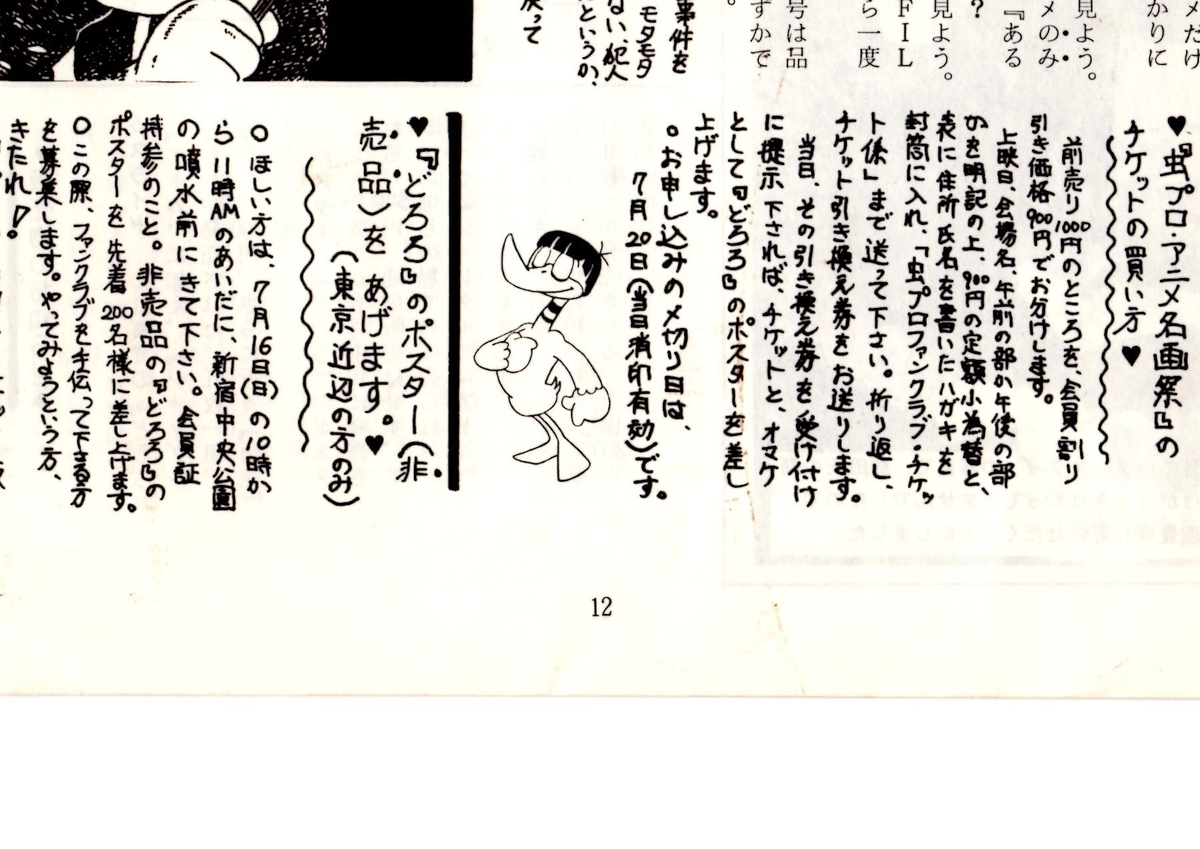 メだけ
かりに
見よう。
メのみ
『ある
？
見よう。
ＦＩＬ
ら一度
号は品
ずかで
。
事件を
モタモタ
ない、犯人
というか、
戻って
♥『虫プロ・アニメ名画祭』の
チケットの買い方♥
前売り1000円のところを、会員・割り
引き価格900円でお分けします。
上映日、会場名、午前の部か午後の部
かを明記の上、900円の定額小為替と、
表に住所氏名を書いたハガキを
封筒に入れ、「虫プロファンクラブ・チケッ
ト係」まで送って下さい。折り返し、
チケット引き換え券をお送りします。
当日、その引き換え券を受け付け
に提示下されば、チケットと、オマケ
として『どろろ』のポスターを差し
上げます。
○お申し込みの〆切り日は、
7月20日(当日消印有効)です。
♥『どろろ』のポスター(非
売品)をあげます。♥
(東京近辺の方のみ)
○ほしい方は、7月16日(日)の10時か
ら11時AMのあいだに、新宿中央公園
の噴水前にきて下さい。会員証
持参のこと。非売品の『どろろ』の
ポスターを先着200名様に差し上げます。
○この際、ファンクラブを手伝って下さる方
を募集します。やってみようという方、
きたれ！
12